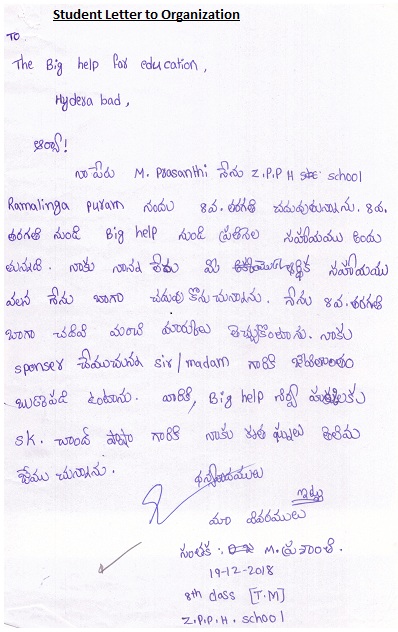 Student Letter to Organization
TO
The Big help for education,
Hydera bad,
ఆర్యా!
నా పేరు M. Prasanthi నేను Z.P.P H school
Ramalinga puram నందు 8వ. తరగతి చదువుతున్నాను. 8వ.
తరగతి నుండి Big help నుండి ప్రతినెల సహాయము అందు
తున్నది. నాకు నాన్న లేడు మీ ఆర్థిక సహాయము
వలన నేను బాగా చదువు కొను చున్నాను. నేను 8వ. తరగతి
బాగా చదివి మంచి మార్కులు తెచ్చుకొంటాను. నాకు
sponser చేయుచున్న sir/madam గారికి జీవితాంతం
ఋణపడి ఉంటాను. వారికి, Big help సర్వీ
sk. చాంద్ పాషా గారికి నాకు కృత ఘ్నలు తెలియ
జేయు చున్నాను.
ధన్యవాదములు
ఇట్లు
మా వివరములు
సంతకం: M. ప్రశాంతి.
19-12-2018
8th class [T.M]
Z.P.P.H. school